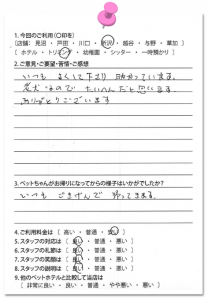 1.今回のご利用(〇印を)
[店舗: 見沼 ・ 戸田 ・ 川口 ・ 所沢 ・ 越谷 ・ 与野 ・ 草加 ]
[ ホテル ・ トリミング ・ 幼稚園 ・ シッター ・ 一時預かり ]
2.ご意見・ご要望・苦情・ご感想
いつも よくして下さり 助かっています。
老犬なので たいへんだと思います。
ありがとうございます
3.ペットちゃんがお帰りになってからの様子はいかがでしたか?
いつも ごきげんで 帰ってきます。
4.ご利用料金は [ 高い ・ 普通 ・ 安い ]
5.スタッフの対応は [ 良い ・ 普通 ・ 悪い ]
6.スタッフの礼節は [ 良い ・ 普通 ・ 悪い ]
7.スタッフの笑顔は [ 良い ・ 普通 ・ 悪い ]
8.スタッフの説明は [ 良い ・ 普通 ・ 悪い ]
9.他のペットホテルと比較して当店は
[ 非常に良い ・ 良い ・ 普通 ・ やや悪い ・ 悪い ]